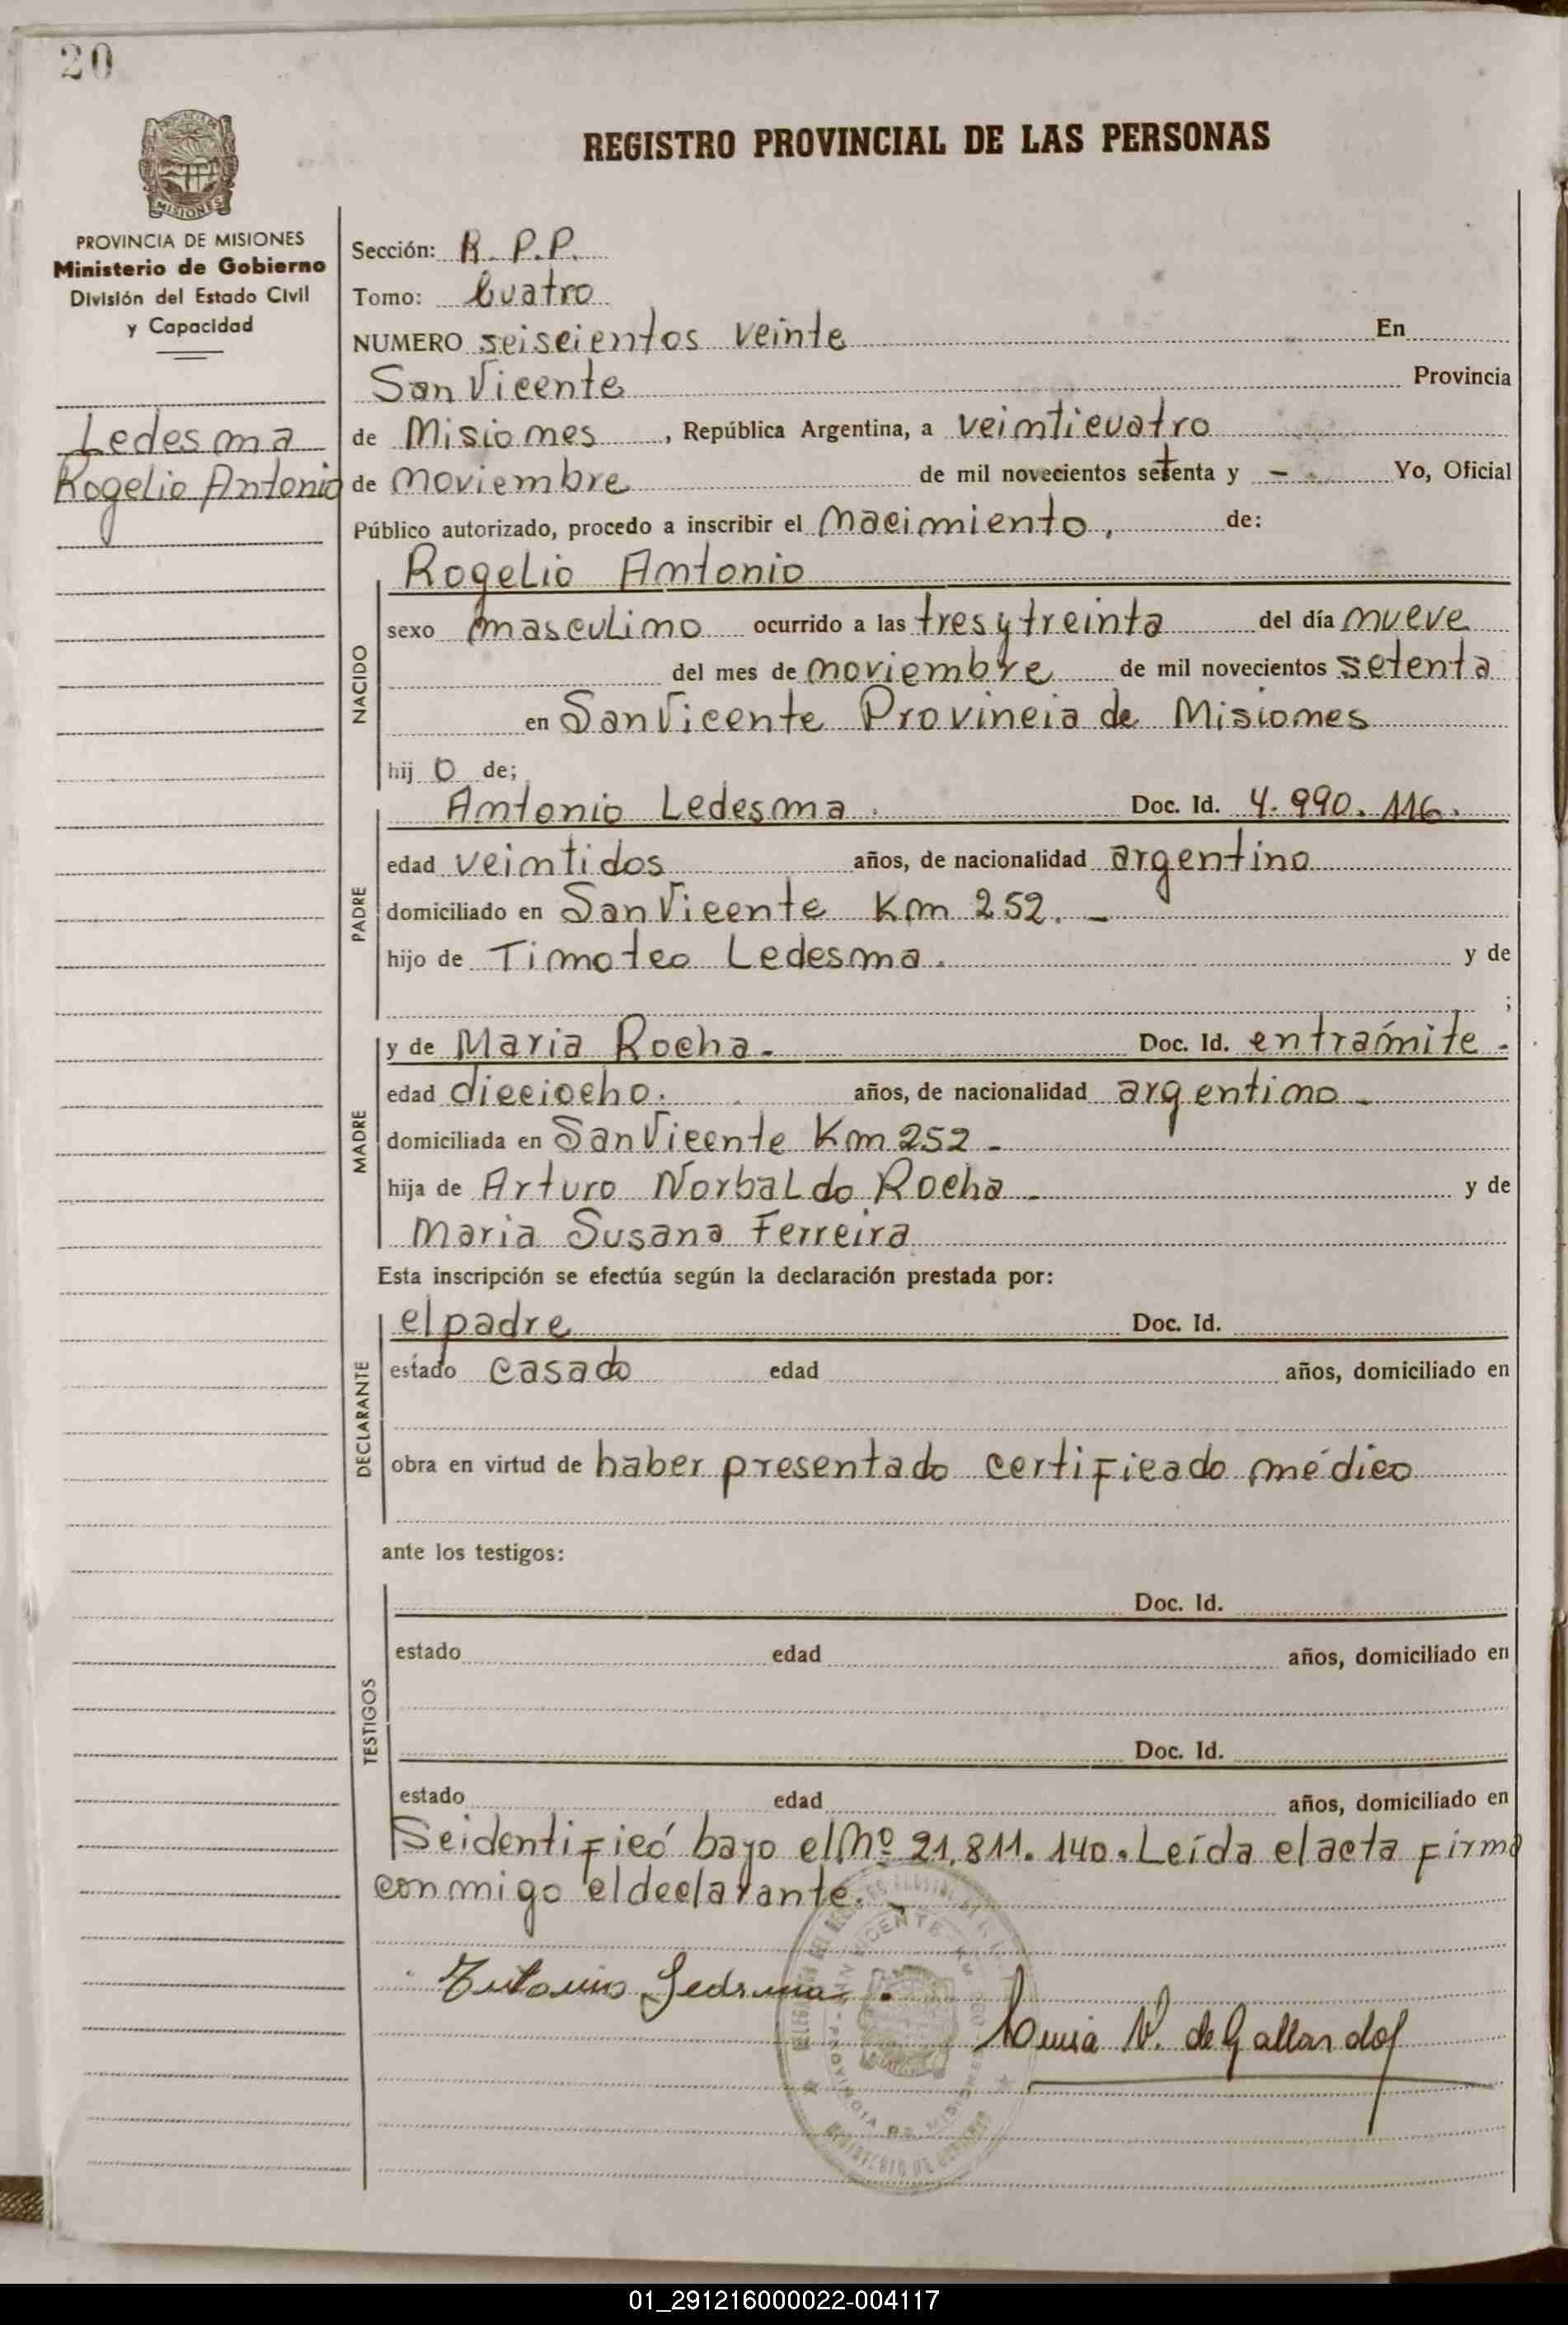 20
MISIONES
PROVINCIA DE MISIONES
Ministerio de Gobierno
División del Estado Civil
y Capacidad
Ledesma
Rogelio Antonio
REGISTRO PROVINCIAL DE LAS PERSONAS
Sección: R. P.P.
Tomo: Cuatro
NUMERO seiscientos veinte En
San Vicente Provincia
de Misiones , República Argentina, a veinticuatro
de noviembre de mil novecientos setenta y - Yo, Oficial
Público autorizado, procedo a inscribir el nacimiento, de:
NACIDO
Rogelio Antonio
sexo masculino ocurrido a las tres y treinta del día nueve
del mes de noviembre de mil novecientos setenta
en San Vicente Provincia de Misiones
hij o de;
PADRE
Antonio Ledesma. Doc. Id. 4.990.116.
edad veintidos años, de nacionalidad argentino
domiciliado en San Vicente Km 252. -
hijo de Timoteo Ledesma. y de
;
MADRE
y de Maria Rocha. Doc. Id. en trámite -
edad dieciocho. años, de nacionalidad argentino -
domiciliada en San Vicente Km 252 -
hija de Arturo Norbaldo Rocha - y de
Maria Susana Ferreira
Esta inscripción se efectúa según la declaración prestada por:
DECLARANTE
el padre Doc. Id.
estado casado edad años, domiciliado en
obra en virtud de haber presentado certificado médico
ante los testigos:
TESTIGOS
Doc. Id.
estado edad años, domiciliado en
Doc. Id.
estado edad años, domiciliado en
Se identificó bajo el Nº 21.811.140. Leída el acta firma
conmigo el declarante. -
Antonio Ledesma
N. de Gallardo
SAN VICENTE
PROVINCIA DE MISIONES
MINISTERIO DE GOBIERNO
01_291216000022-004117